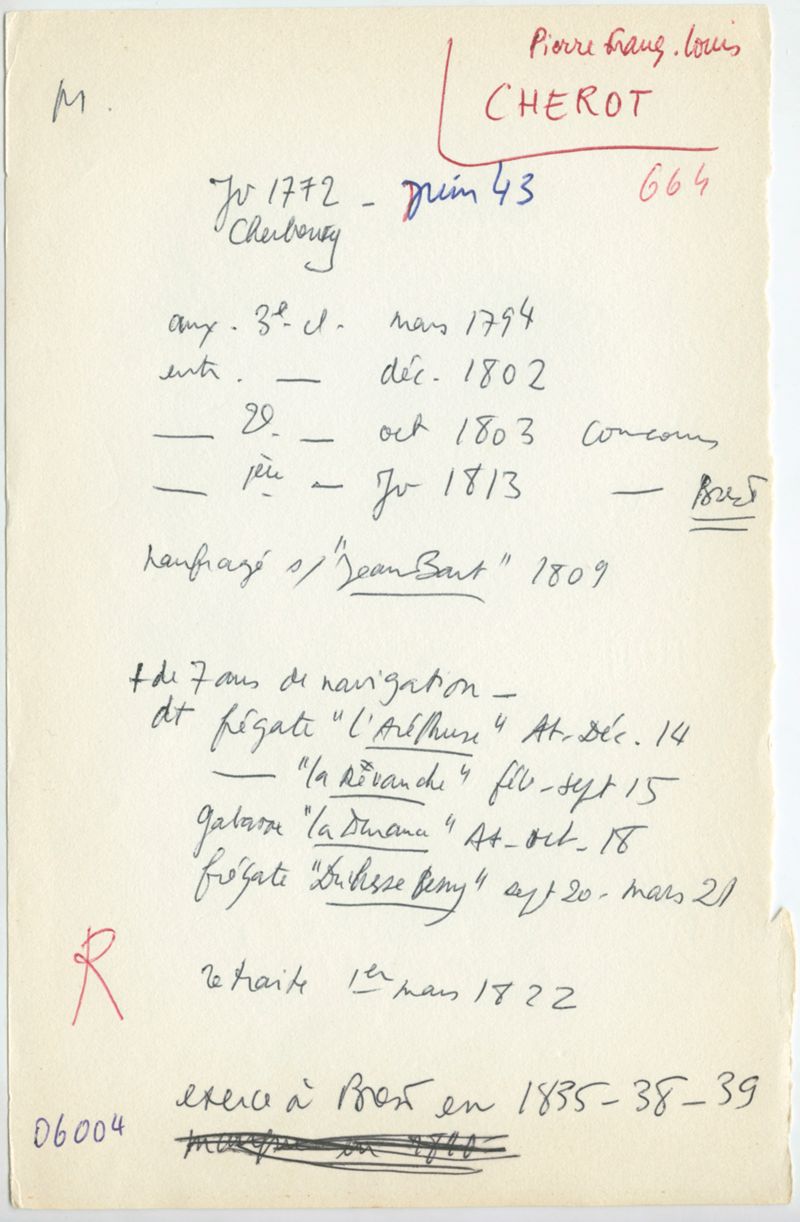 Pierre Franç. Louis
M.
CHEROT
Jv 1772 - juin 43
664
Cherbourg
aux. 3e cl. mars 1794
entr. — déc. 1802
— 2e. — oct 1803 concours
— 1ère — Jv 1813 — Brest
naufragé s/ "Jean Bart" 1809
+ de 7 ans de navigation -
dt frégate "l'Aréthuse" At-Déc. 14
— "la Révanche" fév-sept 15
gabarre "la Durance" At-oct-18
frégate "Duchesse Berry" sept 20-mars 21
R
retraite 1er mars 1822
exerce à Brest en 1835-38-39
06004